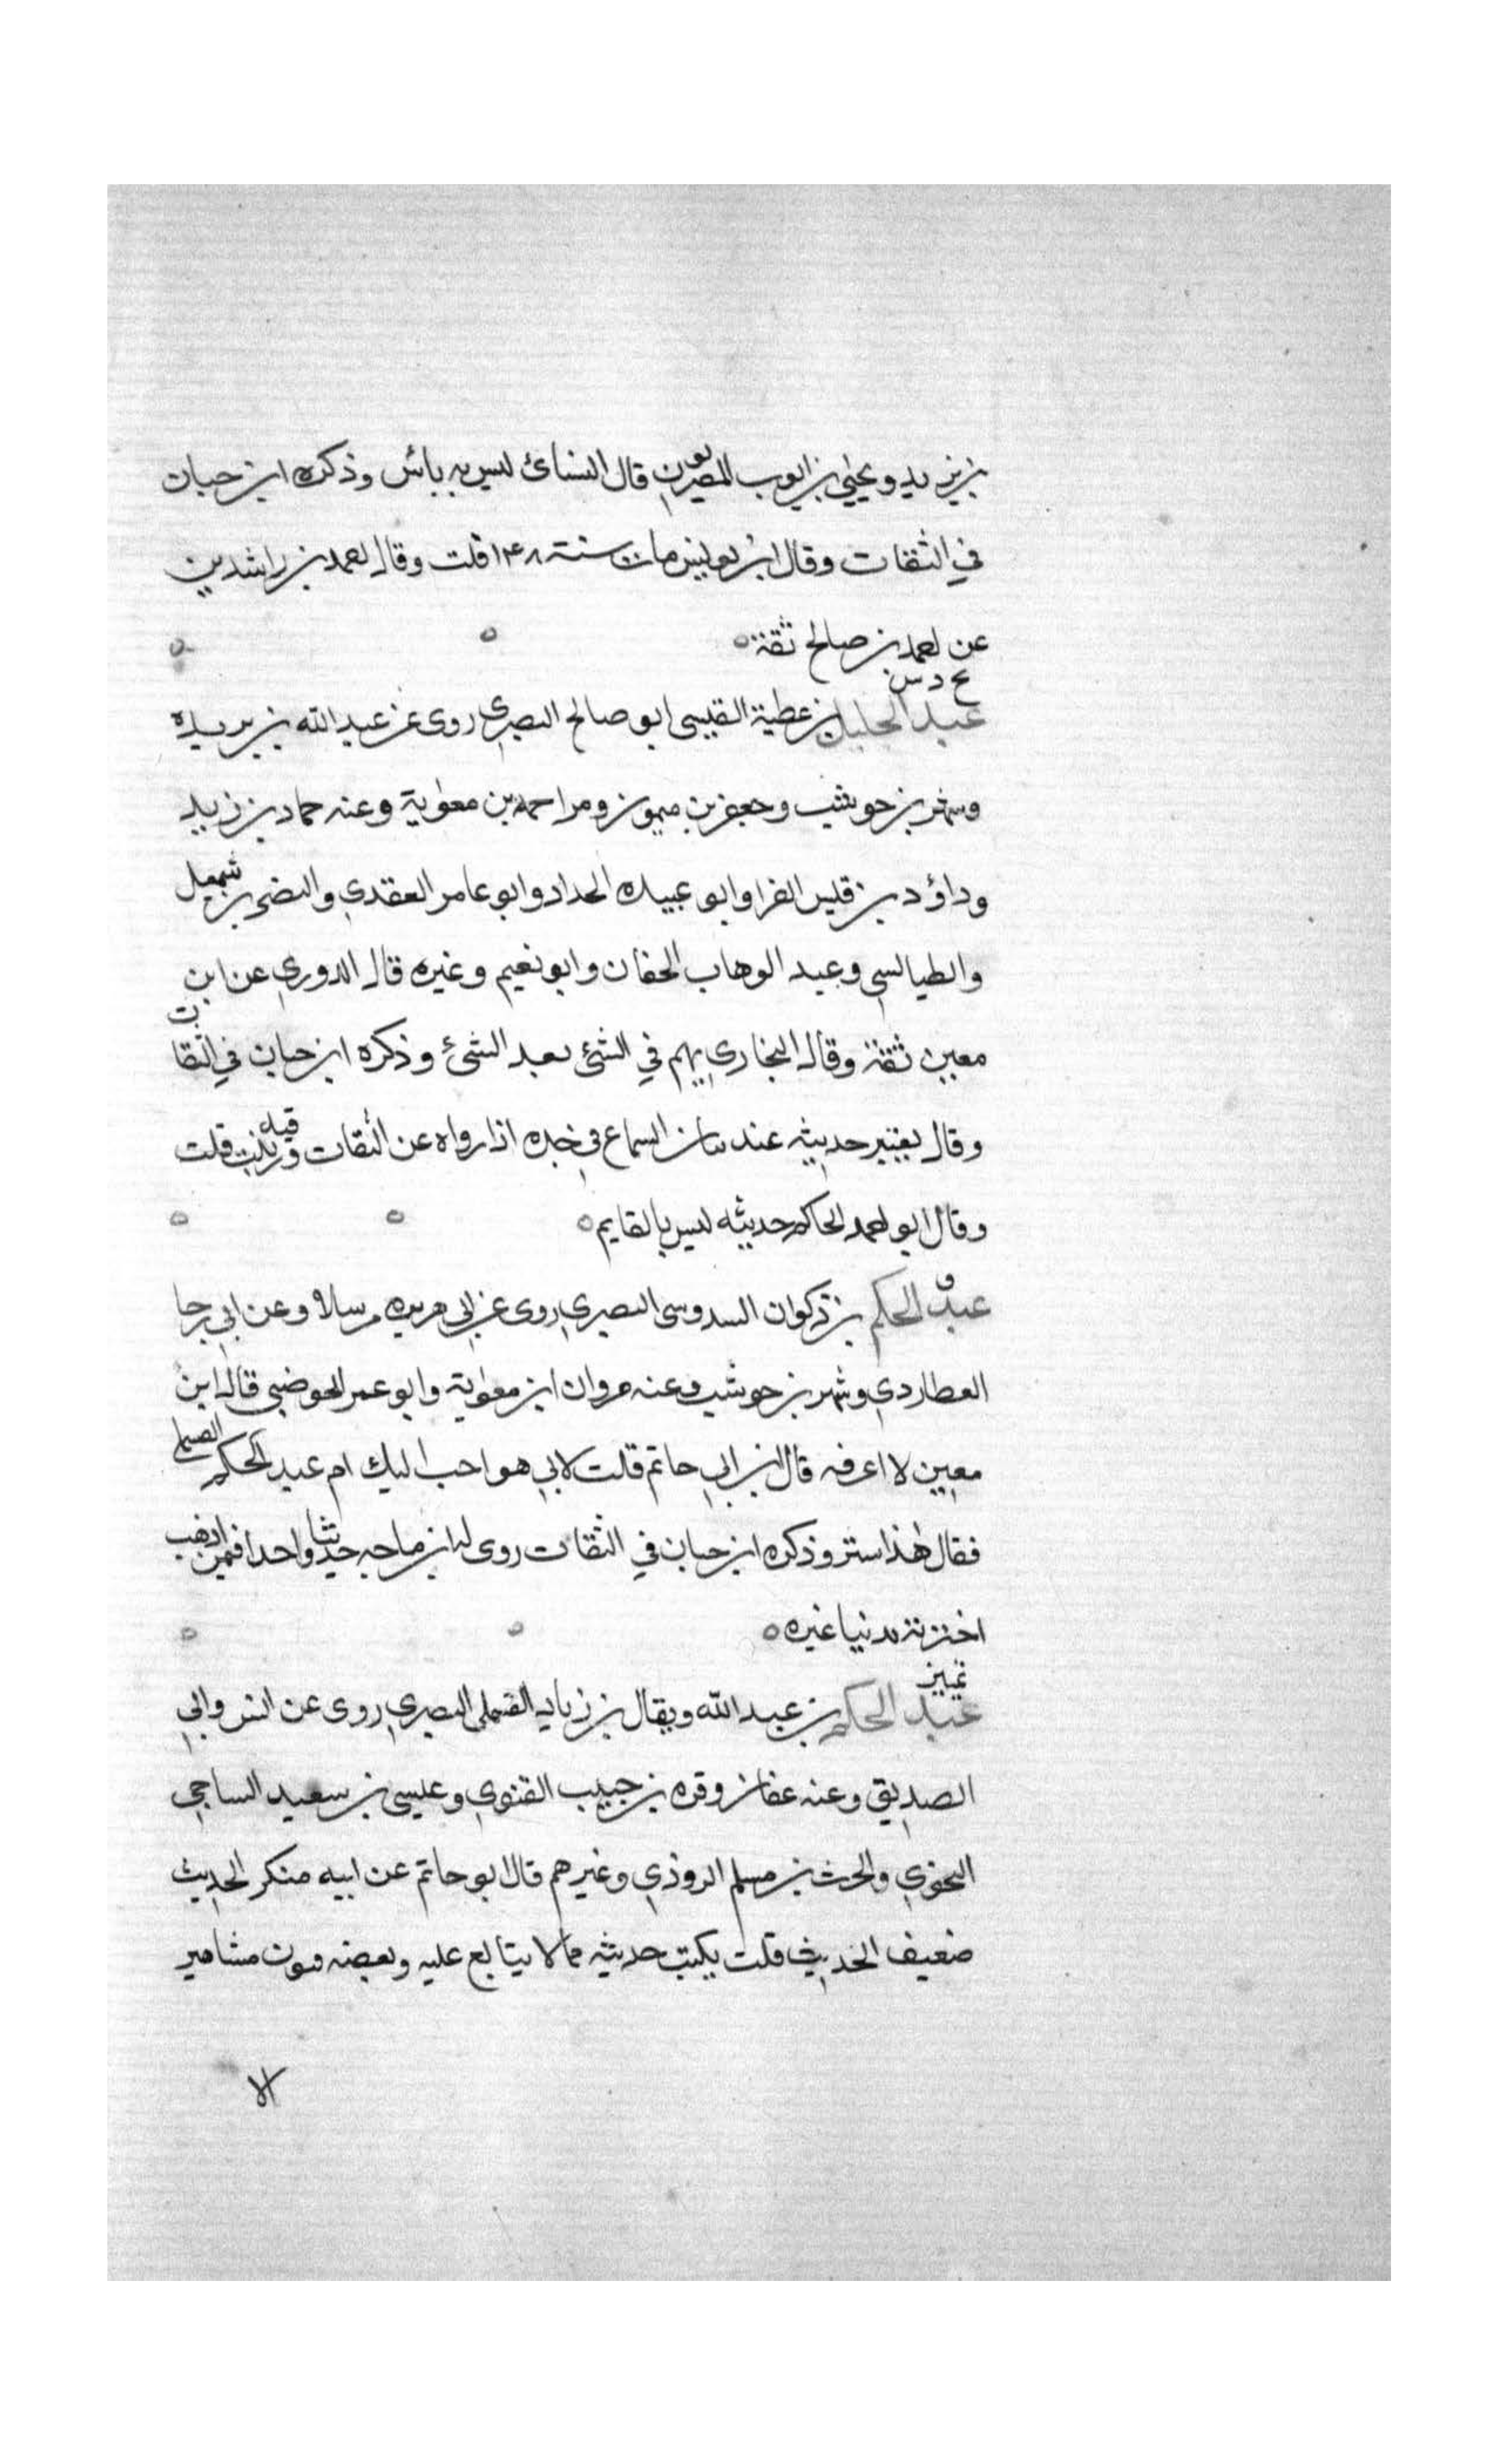 بن يزيد ويحيى بن ايوب المصريون قال النسائ ليس به بائس وذكره ابن حبان
في الثقات وقال ابن يونس مات سنة ١٤٨ قلت وقال احمد بن راشدين
عن احمد بن صالح ثقة
بخ د س
عبد الجليل بن عطية القيسي ابو صالح البصري روى عن عبد الله بن بريدة
وشهر بن حوشب وجعفر بن ميمون ومزاحم بن معٰوية وعنه حماد بن زيد
وداؤد بن قيس الفرا وابو عبيده الحداد وابو عامر العقدي والنضر بن شميل
والطيالسي وعبد الوهاب الخفان وابو نعيم وغيره قال الدوري عن ابن
معين ثقة وقال البخاري يهم في الشئ بعد الشئ وذكره ابن حبان في الثقات
وقال يعتبر حديثه عند بيان السماع في خبره اذا رواه عن الثقات قلت
وقال ابو احمد الحاكم حديثه ليس بالقايم
ق
عبد الحكم بن ذكوان السدوسي البصري روى عن ابي هريره مرسلا وعن ابي رجا
العطاردي وشهر بن حوشب وعنه مروان ابن معٰوية وابو عمر الحوضي قال ابن
معين لا اعرفه قال ابن ابي حاتم قلت لابي هو احب اليك ام عبد الحكم
فقال هٰذا استر وذكره ابن حبان في الثقات روى له ابن ماجه حديثا واحدا فيمن اذهب
اخرته بدنيا غيره
تميز
عبد الحكم بن عبد الله ويقال بن زياد القسملي البصري روى عن انس وابي
الصديق وعنه عفان وقره بن حبيب القنوي وعيسى بن سعيد الساجي
النحوي والحرث بن مسلم الروذي وغيرهم قال ابو حاتم عن ابيه منكر الحديث
ضعيف الحديث قلت يكتب حديثه مما لا يتابع عليه وبعضه متون مشاهير
الا